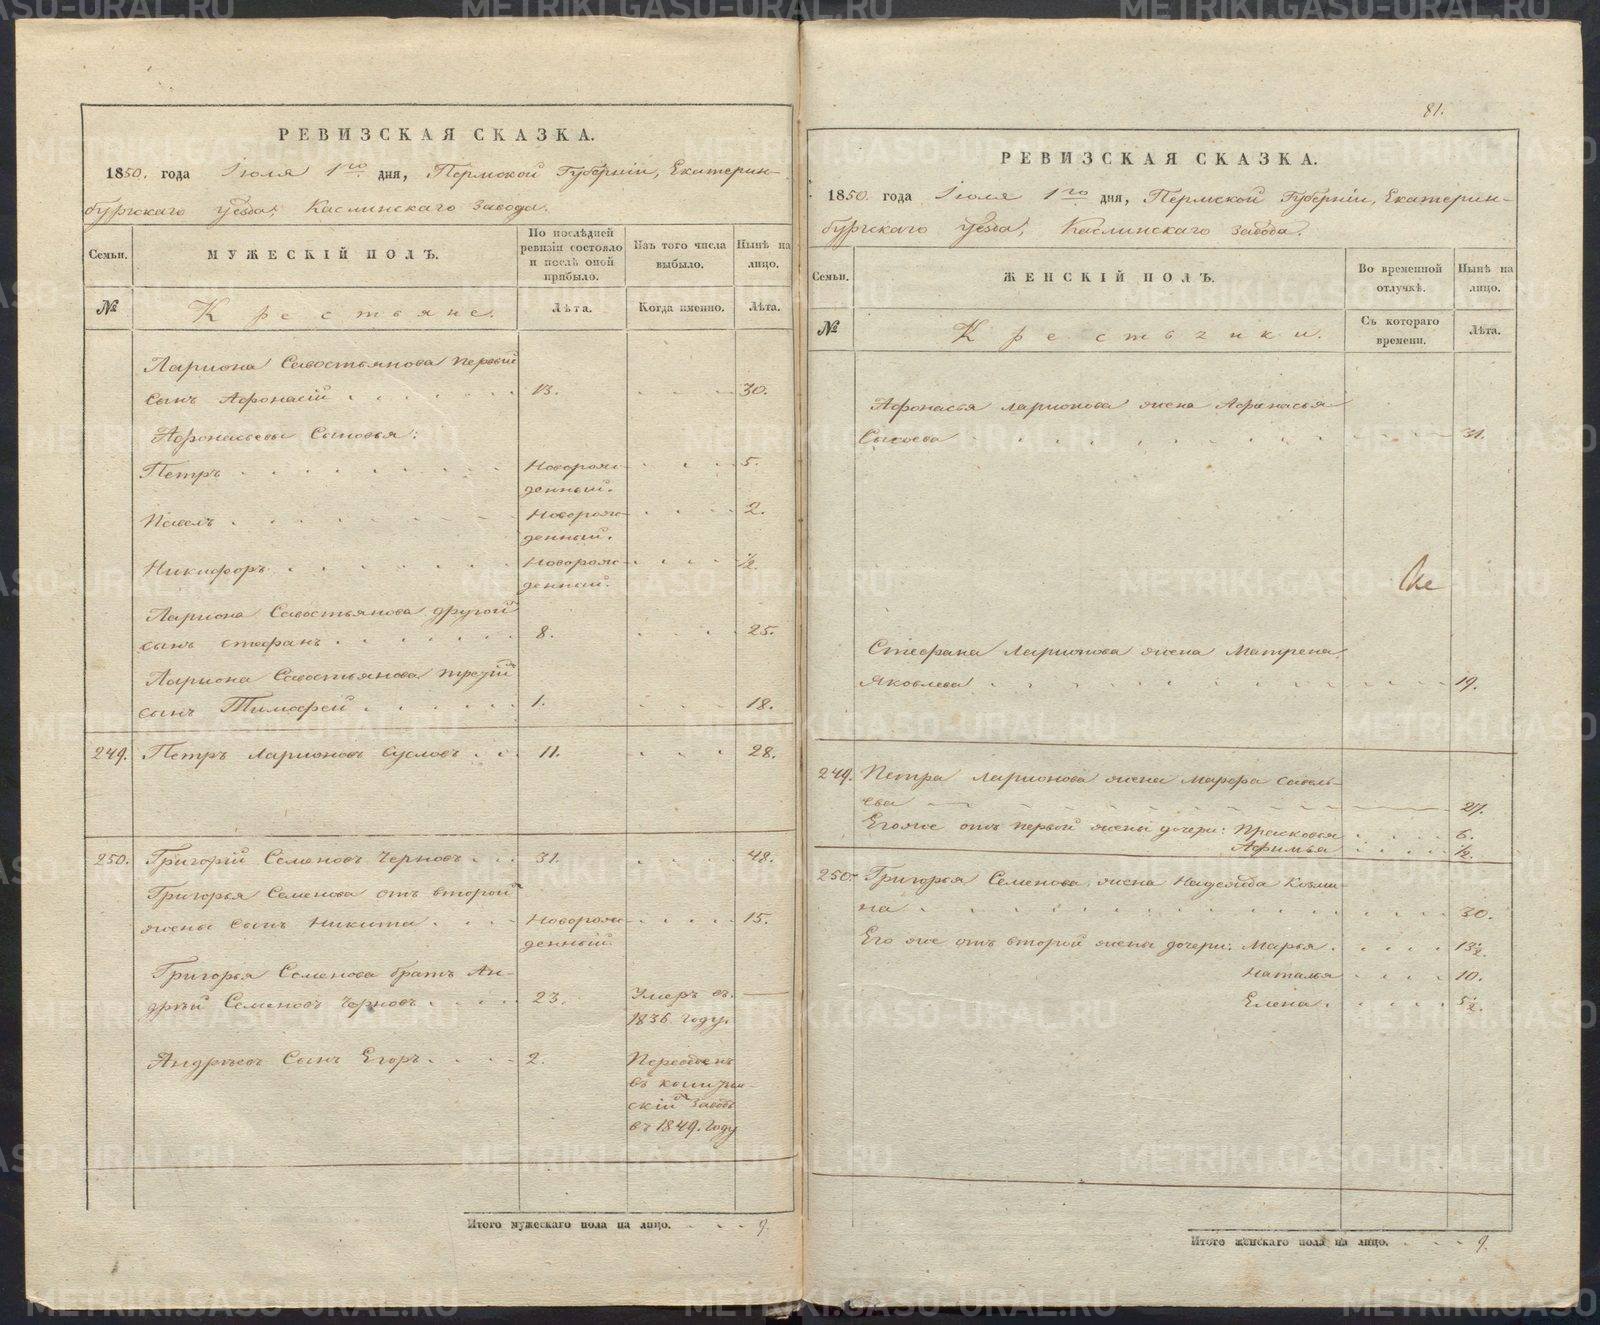 РЕВИЗСКАЯ СКАЗКА.
1850. года Іюля 1го дня, Пермской Губерніи, Екатерин-
бургскаго уезда, Каслинскаго завода.
Семьи.
МУЖЕСКІЙ ПОЛЪ.
По послѣдней ревизіи состояло и послѣ оной прибыло.
Изъ того числа выбыло.
Нынѣ на лицо.
№
Крестьяне.
Лѣта.
Когда именно.
Лѣта.
Лариона Савостьянова первый
сынъ Афонасій . . . . . . 13. . . . 30.
Афонасьевы Сыновья:
Петръ . . . . . . . . Новорож- . . . 5.
денный.
Павелъ . . . . . . . . Новорож- . . . 2.
денный.
Никифоръ . . . . . . . Новорож- . . . ½.
денный.
Лариона Савостьянова другой
сынъ Стефанъ . . . . . . 8. . . . 25.
Лариона Савостьянова третій
сынъ Тимофей . . . . . . 1. . . . 18.
249. Петръ Ларионовъ Сусловъ . . . 11. . . . 28.
250. Григорій Семеновъ Черновъ . . . 31. . . . 48.
Григорья Семенова отъ второй
жены сынъ Никита . . . . Новорож- . . . . 15.
денный.
Григорья Семенова братъ Ан-
дрей Семеновъ Черновъ . . . . 23. Умеръ въ —
1836 году.
Андреевъ Сынъ Егоръ . . . . 2. Переведенъ
въ
скій заводъ
въ 1849. году
Итого мужескаго пола на лицо. . . . 9.
81.
РЕВИЗСКАЯ СКАЗКА.
1850. года Іюля 1го дня, Пермской Губерніи, Екатерин-
бургскаго уезда, Каслинскаго завода.
Семьи.
ЖЕНСКІЙ ПОЛЪ.
Во временной отлучкѣ.
Нынѣ на лицо.
№
Крестьянки.
Съ котораго времени.
Лѣта.
Афонасья Ларионова жена Афанасья
Сысоева . . . . . . . . 31.
Стефана Ларионова жена Матрена
Яковлева . . . . . . . . 19.
249. Петра Ларионова жена Марфа Савель-
ева . . . . . . . . 27.
Егоже отъ первой жены дочери: Прасковья . . . . 6.
Афимья . . . . ½.
250. Григорья Семенова жена Надежда Козми-
на . . . . . . . . 30.
Его же отъ второй жены дочери: Марья . . . . 13½.
Наталья . . . . 10.
Елена . . . . 5½.
Итого женскаго пола на лицо. . . . 9.
METRIKI.GASO-URAL.RU